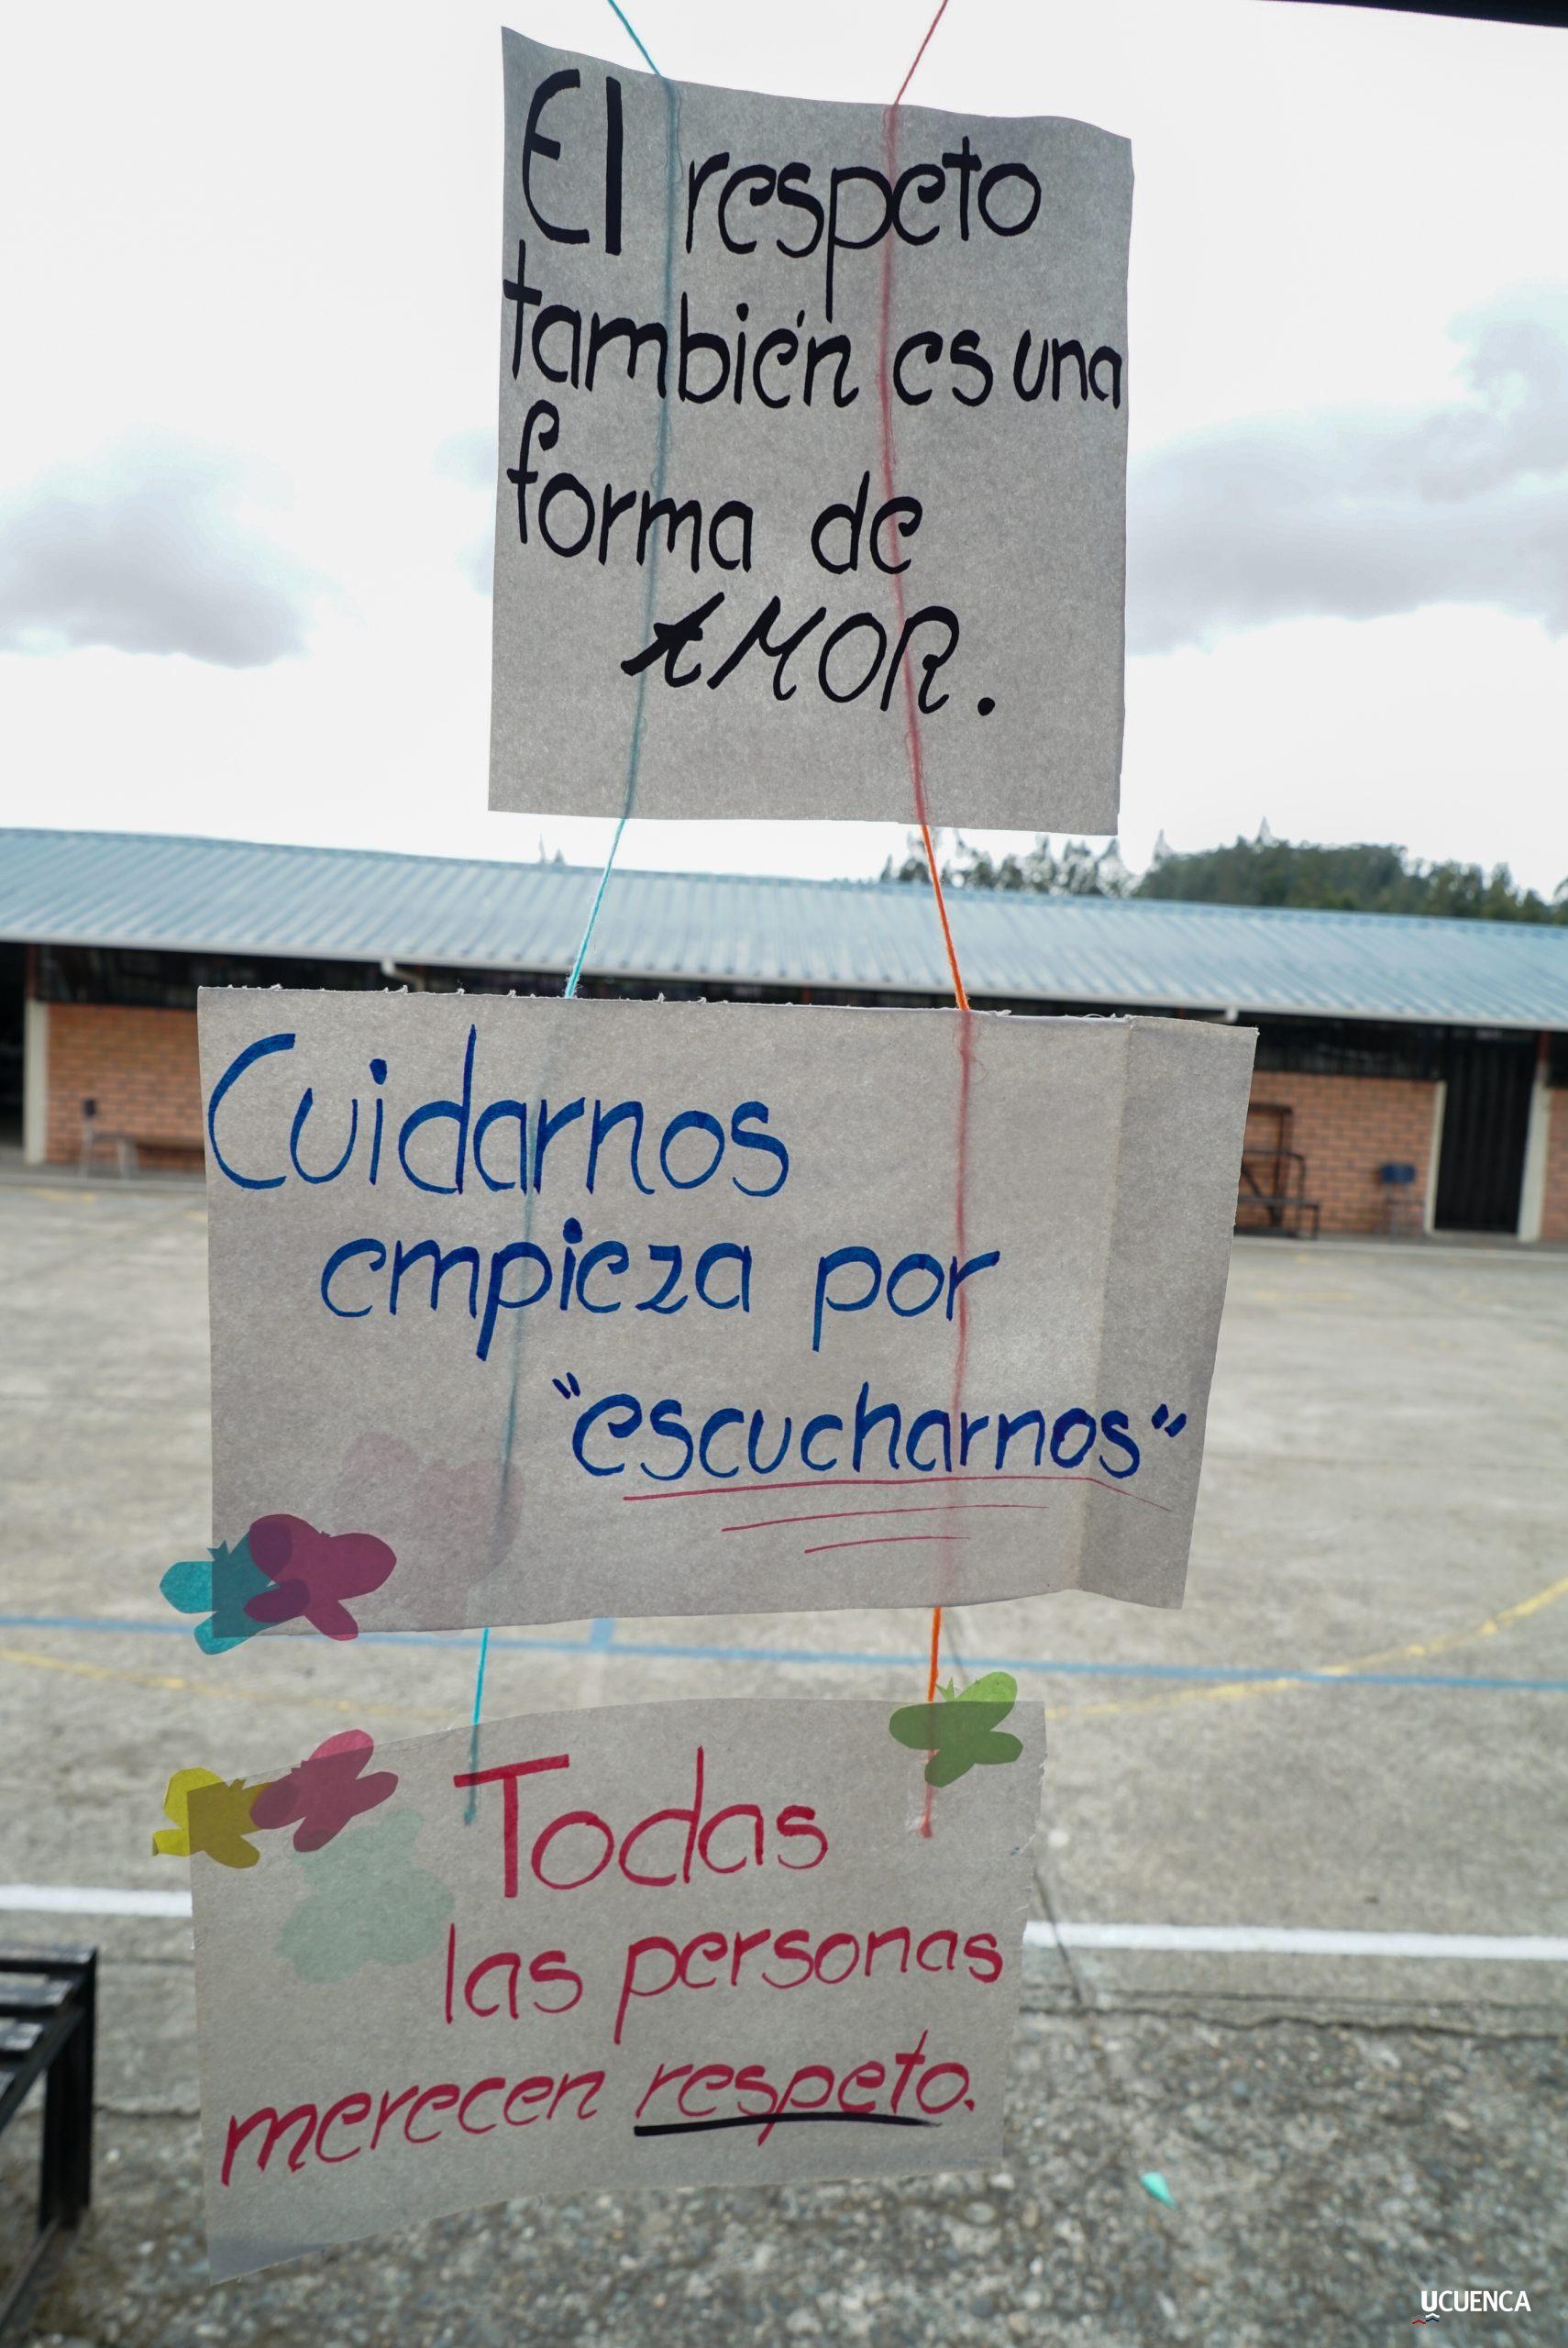 El respeto
también es una
forma de
AMOR.
Cuidarnos
empieza por
"escucharnos"
Todas
las personas
merecen respeto.
UCUENCA